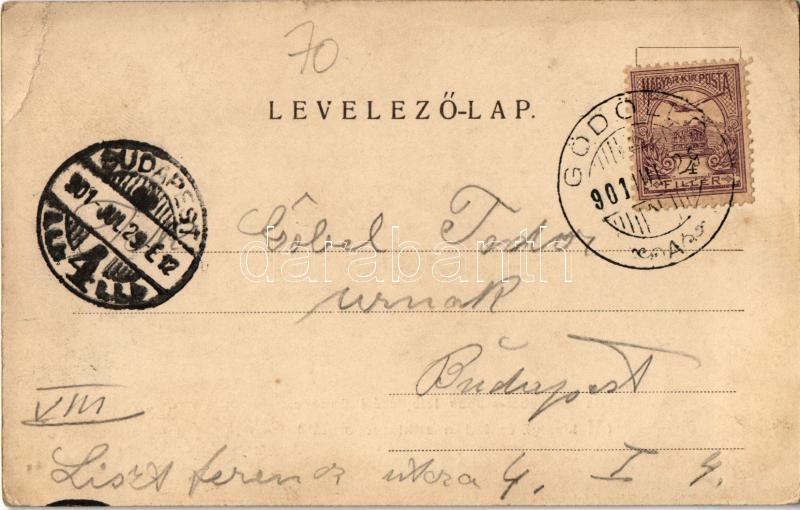 70
LEVELEZŐ-LAP.
MAGYAR KIR. POSTA
4
FILLÉR
GÖDÖL
901
BUDAPEST
901 JUL 29 E 12
4
Göbel
urnak
Budapest
VIII
Liszt ferenc utcza 4. I 4.
darabanth